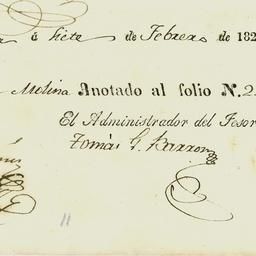 á Siete de Febrero de 182
Molina Anotado al folio N. 2
El Administrador del Tesor
Tomás G. Barron
11